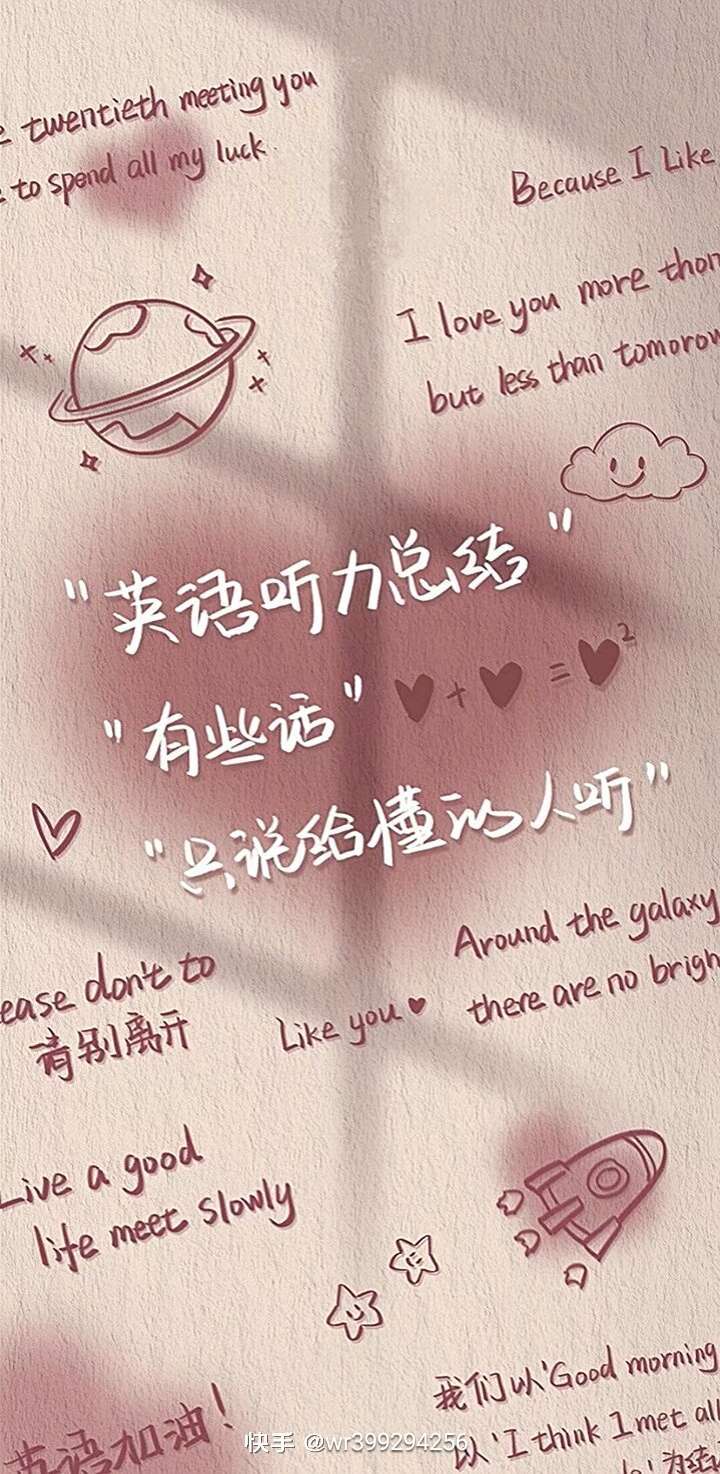 twentieth meeting you
to spend all my luck
Because I Like
I love you more than
but less than tomorrow
"英语听力总结"
"有些话" ♥+♥=♥²
"只说给懂的人听"
Around the galaxy
there are no brigh
ease don't to
请别离开
Like you♥
Live a good
life meet slowly
我们以'Good morning
以'I think I met all
英语加油!
快手 @wr399294256